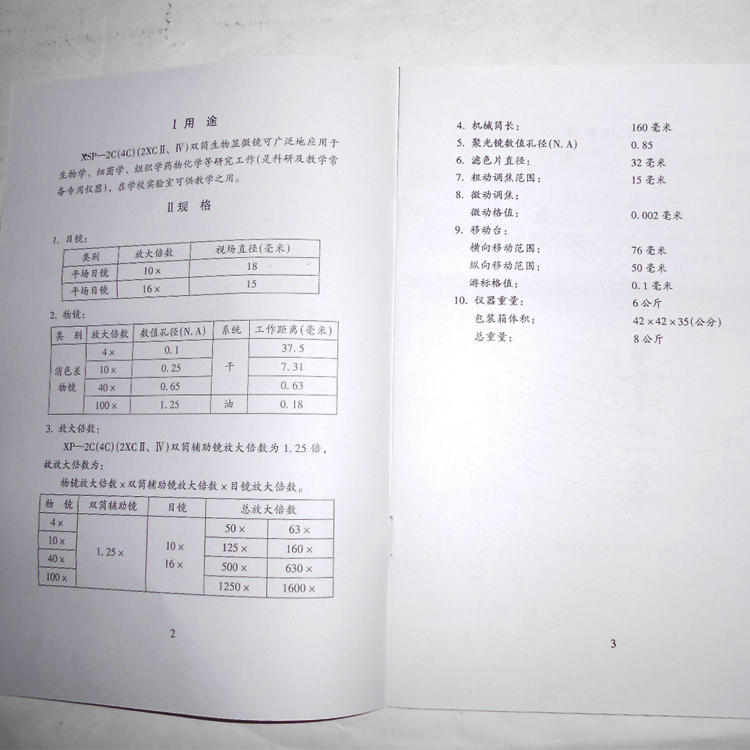 Ⅰ 用 途
XSP—2C(4C)(2XCⅡ、Ⅳ)双筒生物显微镜可广泛地应用于
生物学、细菌学、组织学药物化学等研究工作(是科研及教学常
备专用仪器),在学校实验室可供教学之用。
Ⅱ 规 格
1. 目镜:
类别 放大倍数 视场直径(毫米)
平场目镜 10× 18
平场目镜 16× 15
2. 物镜:
类 别 放大倍数 数值孔径(N.A) 系统 工作距离(毫米)
消色差物镜 4× 0.1 干 37.5
10× 0.25 7.31
40× 0.65 0.63
100× 1.25 油 0.18
3. 放大倍数:
XP—2C(4C)(2XCⅡ、Ⅳ)双筒辅助镜放大倍数为 1.25 倍,
故放大倍数为:
物镜放大倍数×双筒辅助镜放大倍数×目镜放大倍数。
物 镜 双筒辅助镜 目镜 总放大倍数
4× 1.25× 10× 16× 50× 63×
10× 125× 160×
40× 500× 630×
100× 1250× 1600×
2
4. 机械筒长: 160 毫米
5. 聚光镜数值孔径(N.A) 0.85
6. 滤色片直径: 32 毫米
7. 粗动调焦范围: 15 毫米
8. 微动调焦:
微动格值: 0.002 毫米
9. 移动台:
横向移动范围: 76 毫米
纵向移动范围: 50 毫米
游标格值: 0.1 毫米
10. 仪器重量: 6 公斤
包装箱体积: 42×42×35(公分)
总重量: 8 公斤
3